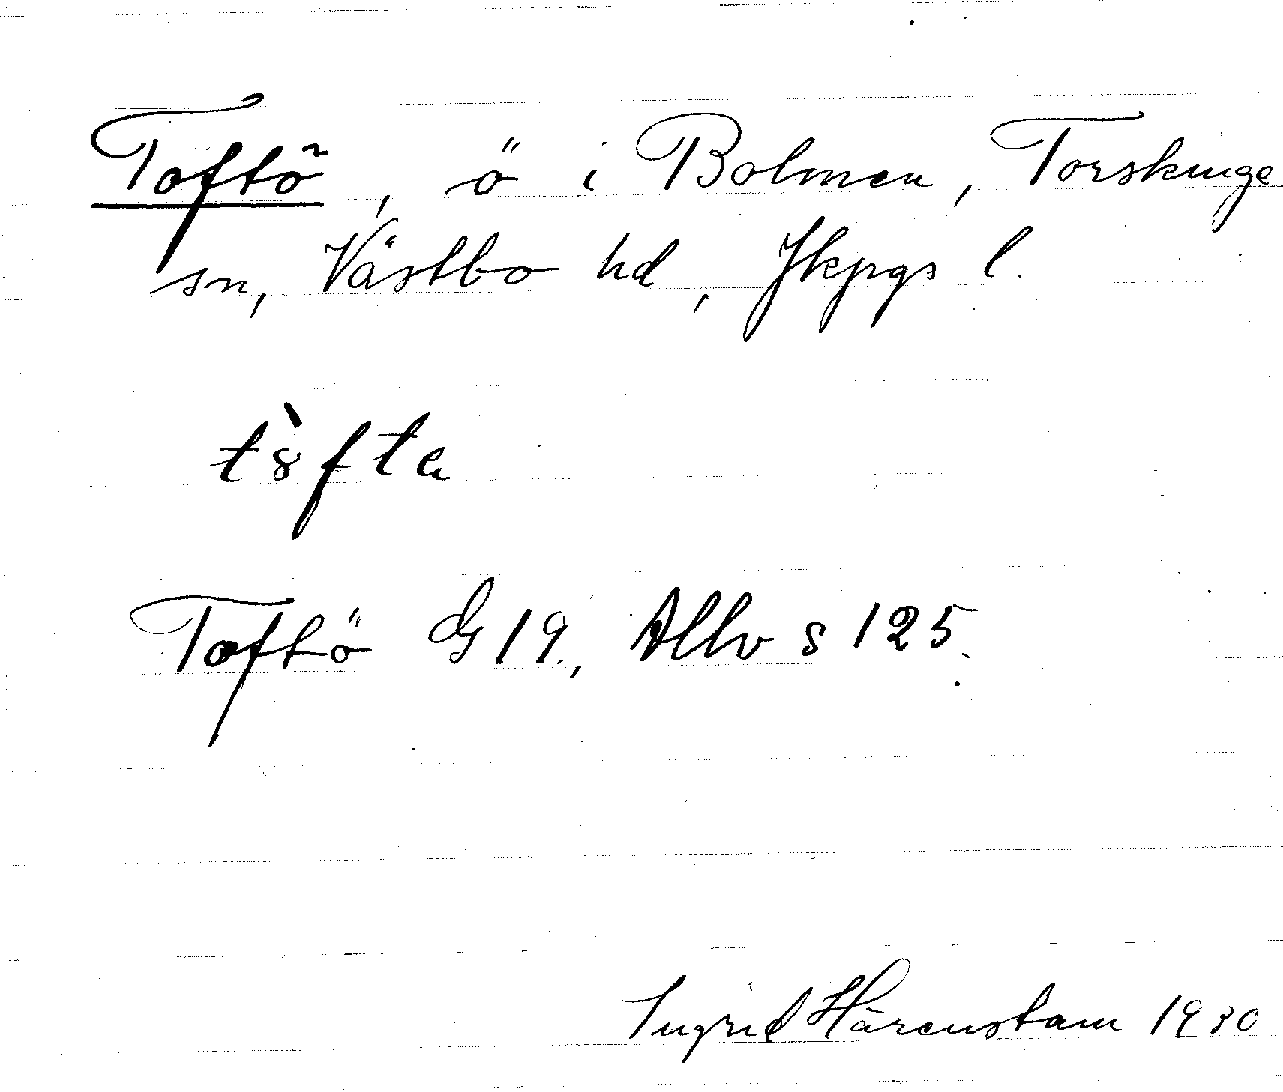 Toftö, ö i Bolmen, Torskinge
sn, Västbo hd, Jkpgs l.
tòfta
Toftö G19, Allv s 125.
Ingrid Härenstam 1930